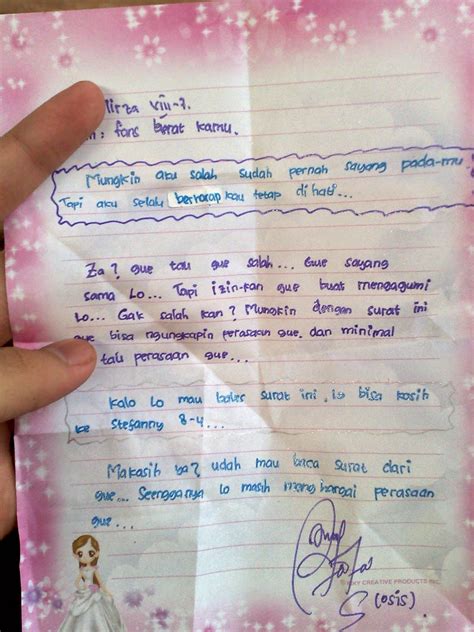 Mirza VIII-7.
: fans berat kamu.
Mungkin aku salah sudah pernah sayang pada-mu
Tapi aku selalu berharap kau tetap di hati...
Za? gue tau gue salah... Gue sayang
sama Lo... Tapi izin-kan gue buat mengagumi
Lo... Gak salah kan? Mungkin dengan surat ini
gue bisa ngungkapin perasaan gue. dan minimal
tau perasaan gue...
Kalo Lo mau bales surat ini, Lo bisa kasih
ke Stefanny 8-4...
Makasih ya? udah mau baca surat dari
gue... Seengganya lo masih menghargai perasaan
gue...
CREATIVE PRODUCTS INC.
(OSIS)